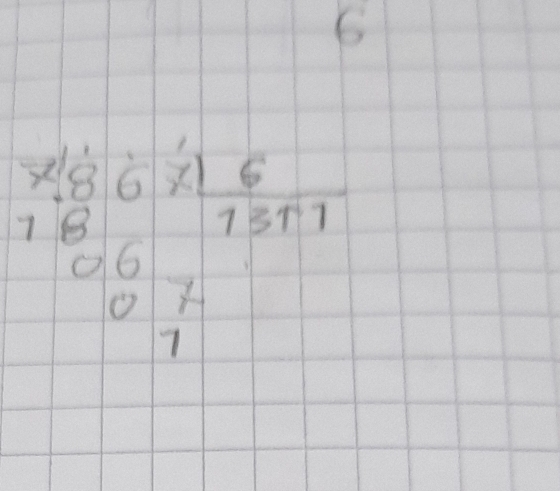 6
7867 6
18 1311
06
07
1